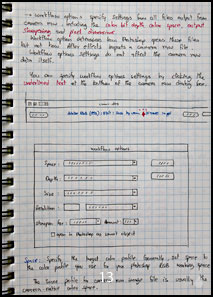 → workflow options : specify settings for all files output from
camera raw, including the color bit depth, color space, output
sharpening and pixel dimensions.
Workflow options determines how Photoshop opens these files
but not how After effects imports a camera raw file.
Workflow options settings do not affect the camera raw
data itself.
You can specify workflow options settings by clicking the
underlined text at the bottom of the camera raw dialog box.
workflow options
Space :
Depth :
Size :
Resolution :
Sharpen for :
Amount :
open in Photoshop as smart object
Space : Specify the target color profile. Generally, set space to
the color profile you use for your Photoshop RGB working space.
The source profile for camera raw image files is usually the
camera native color space.
13